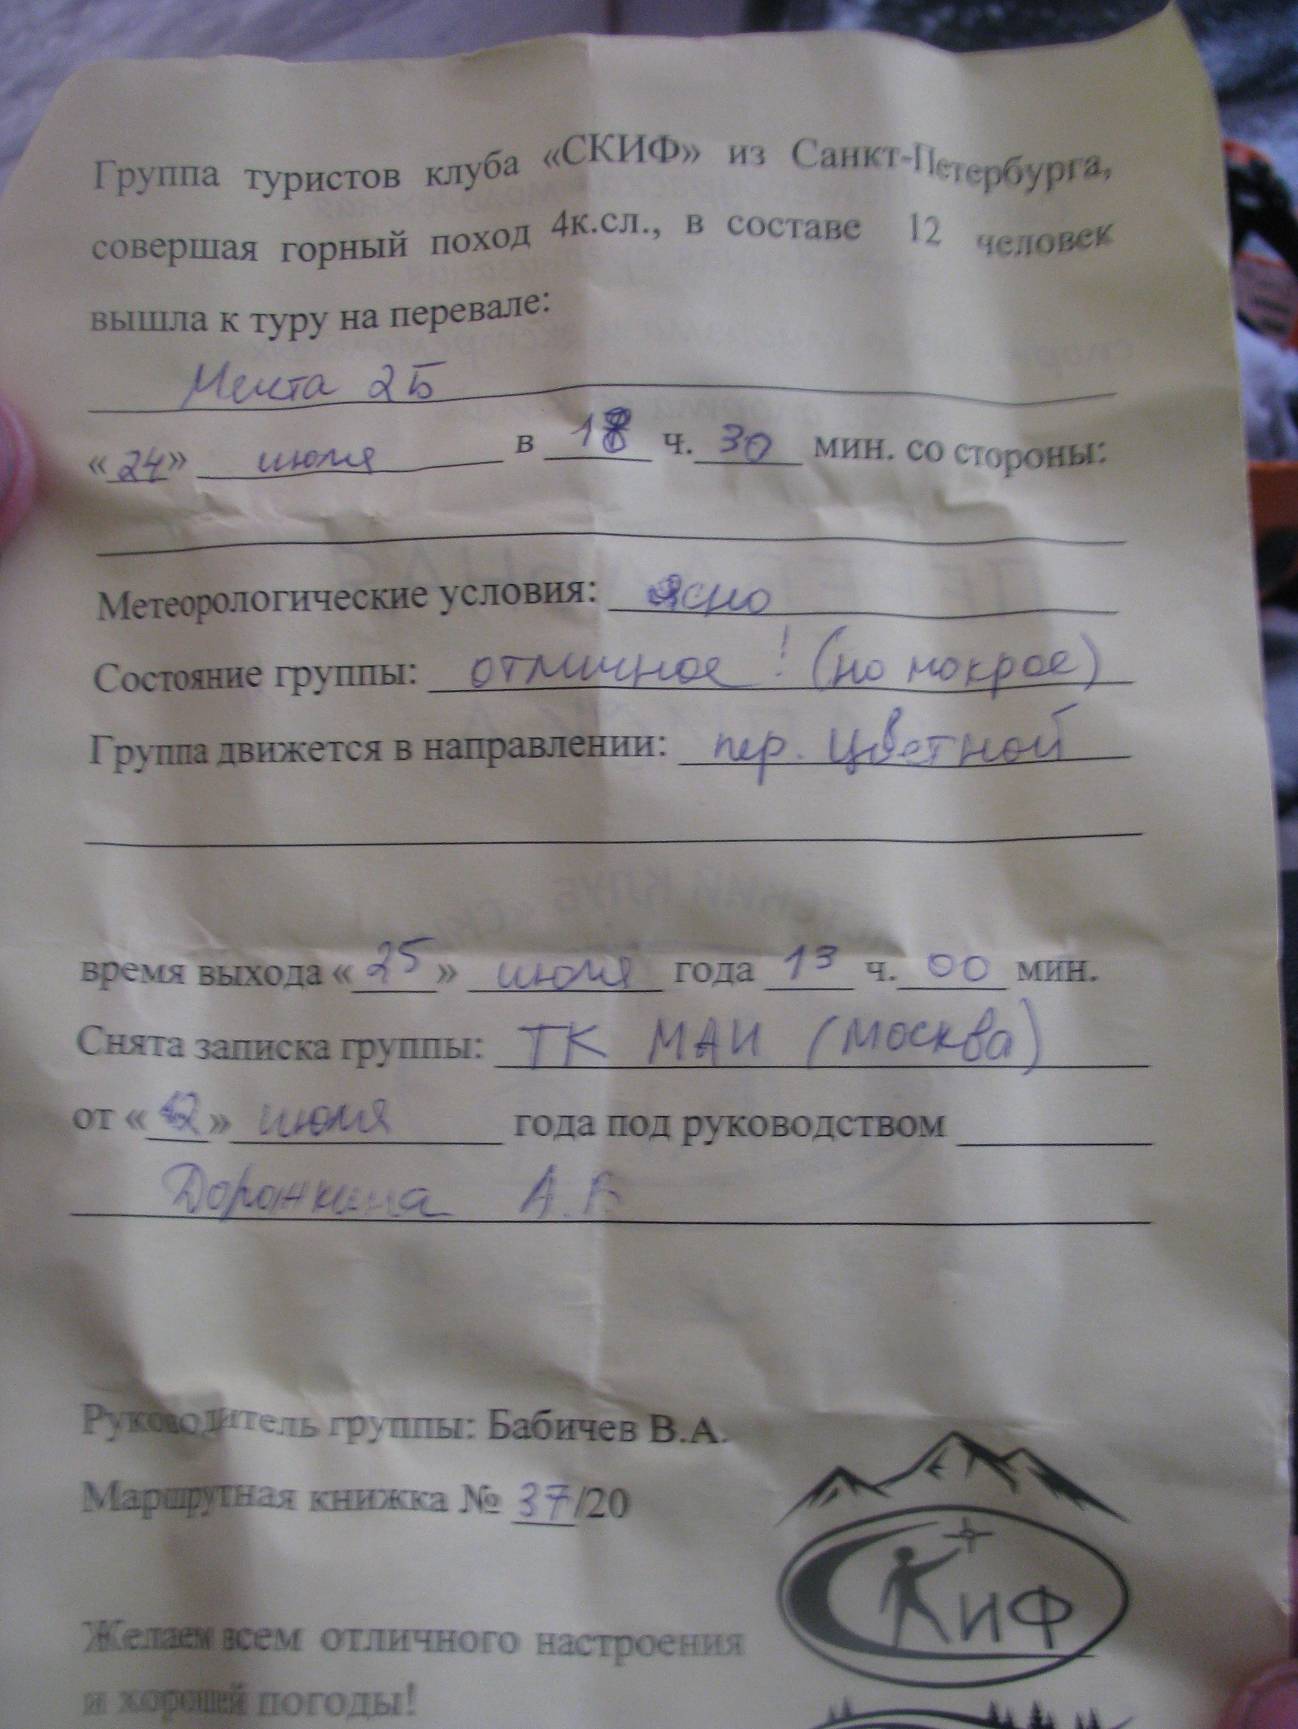 Группа туристов клуба «СКИФ» из Санкт-Петербурга,
совершая горный поход 4к.сл., в составе 12 человек
вышла к туру на перевале:
Мечта 2Б
«24» июля в 18 ч. 30 мин. со стороны:
Метеорологические условия: ясно
Состояние группы: отличное! (но мокрое)
Группа движется в направлении: пер. Цветной
время выхода «25» июля года 13 ч. 00 мин.
Снята записка группы: ТК МАИ (Москва)
от «12» июля года под руководством
Доронкина А.
Руководитель группы: Бабичев В.А.
Маршрутная книжка № 37/20
СКИФ
Желаем всем отличного настроения
и хорошей погоды!